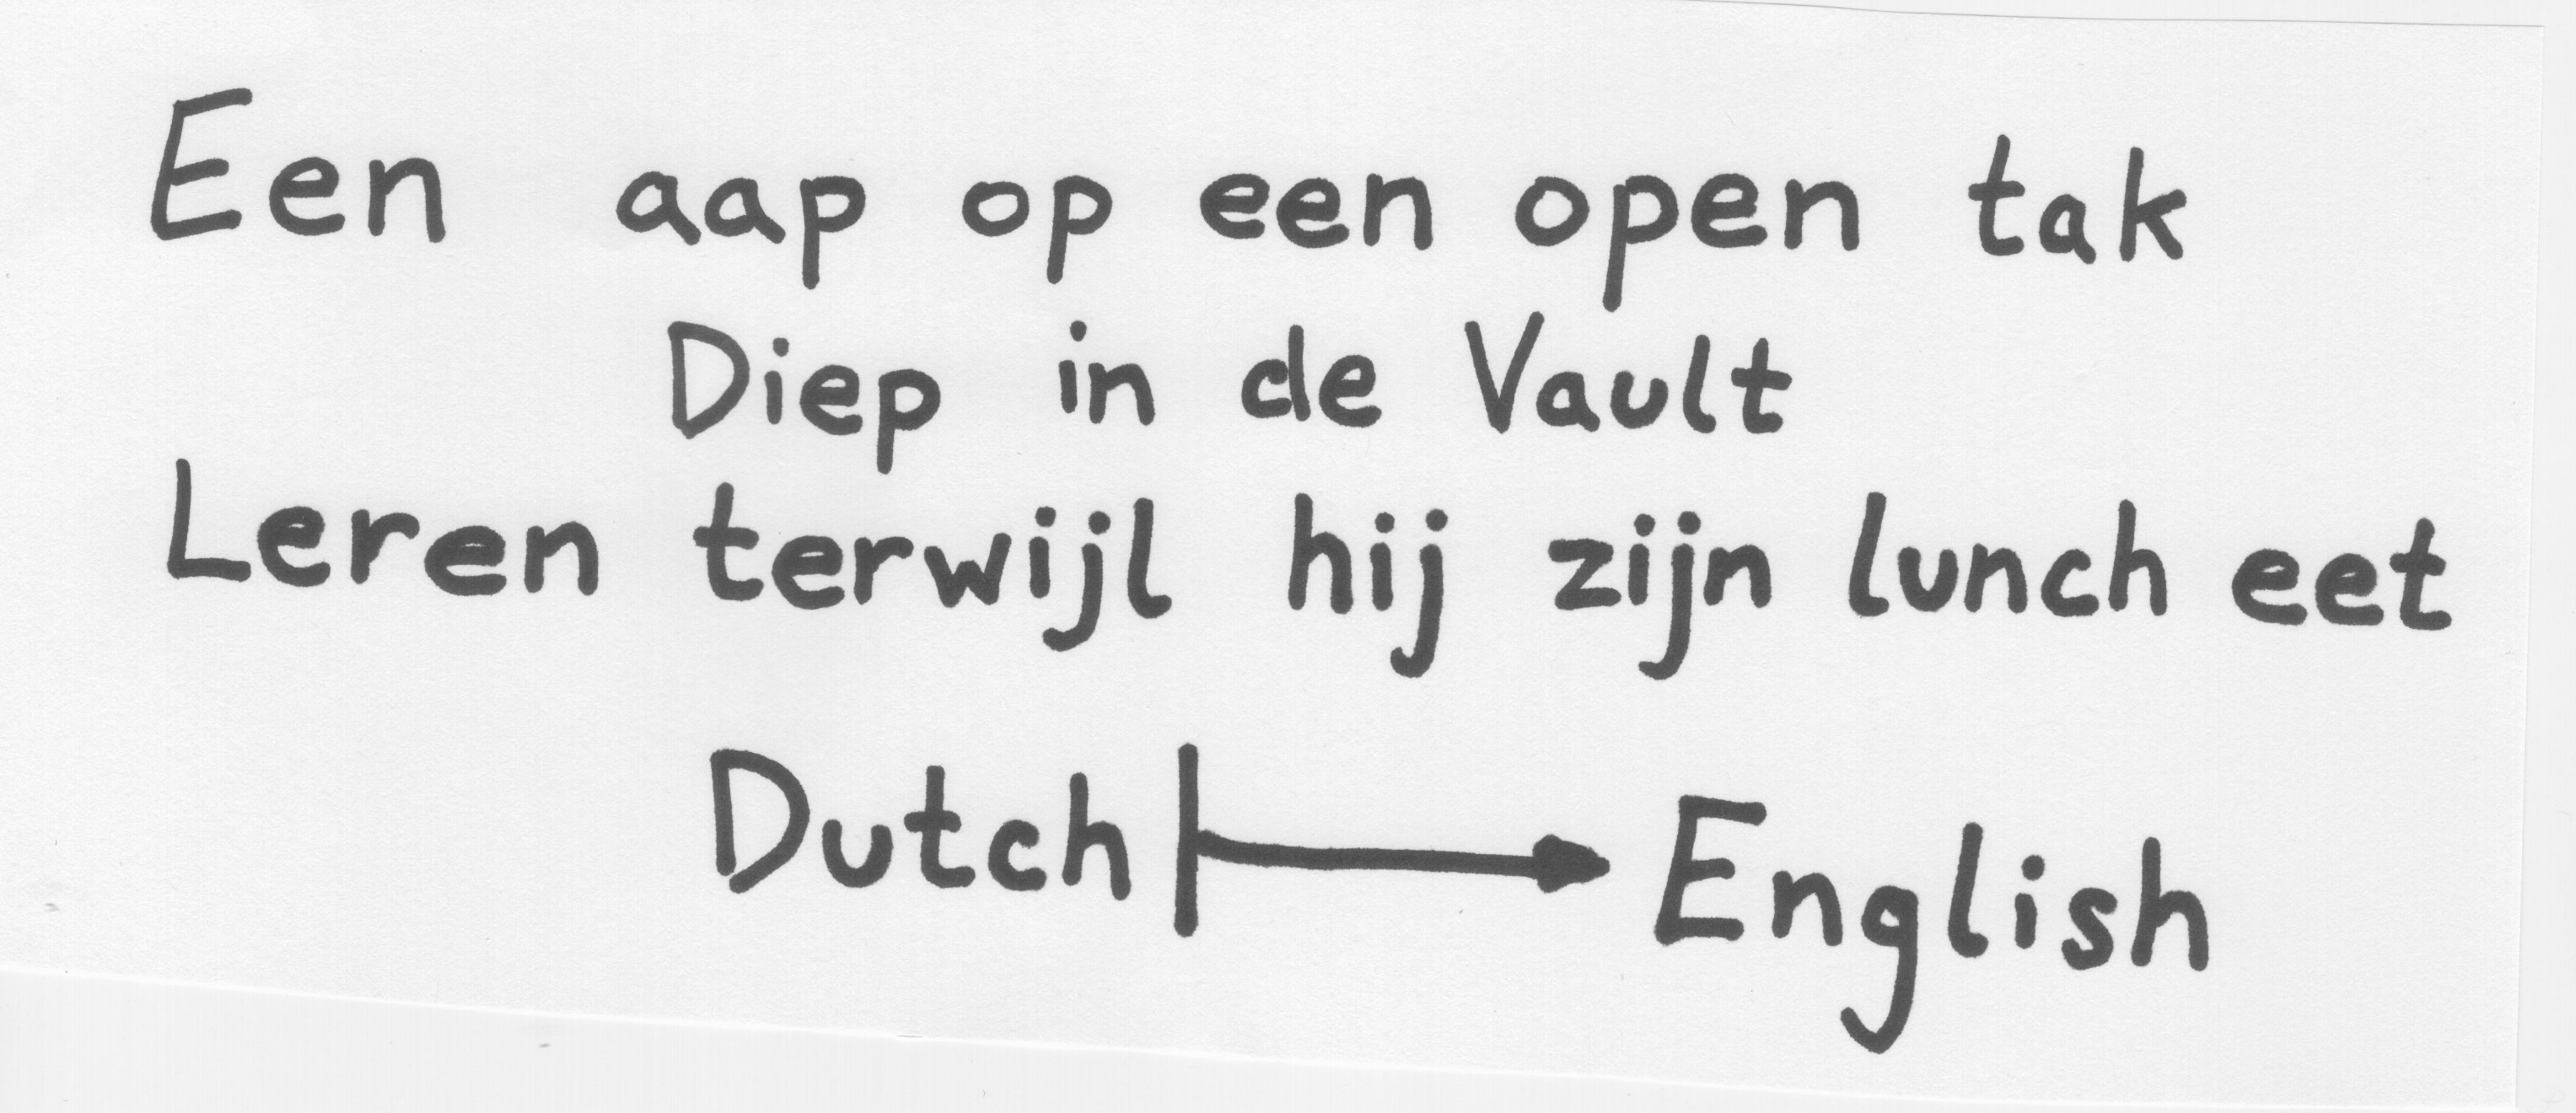 Een aap op een open tak
Diep in de Vault
Leren terwijl hij zijn lunch eet
Dutch → English